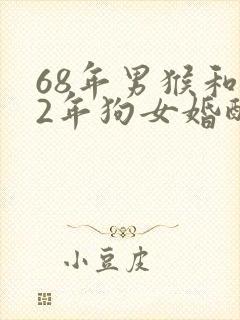 68年男猴和
2年狗女婚配
小豆皮